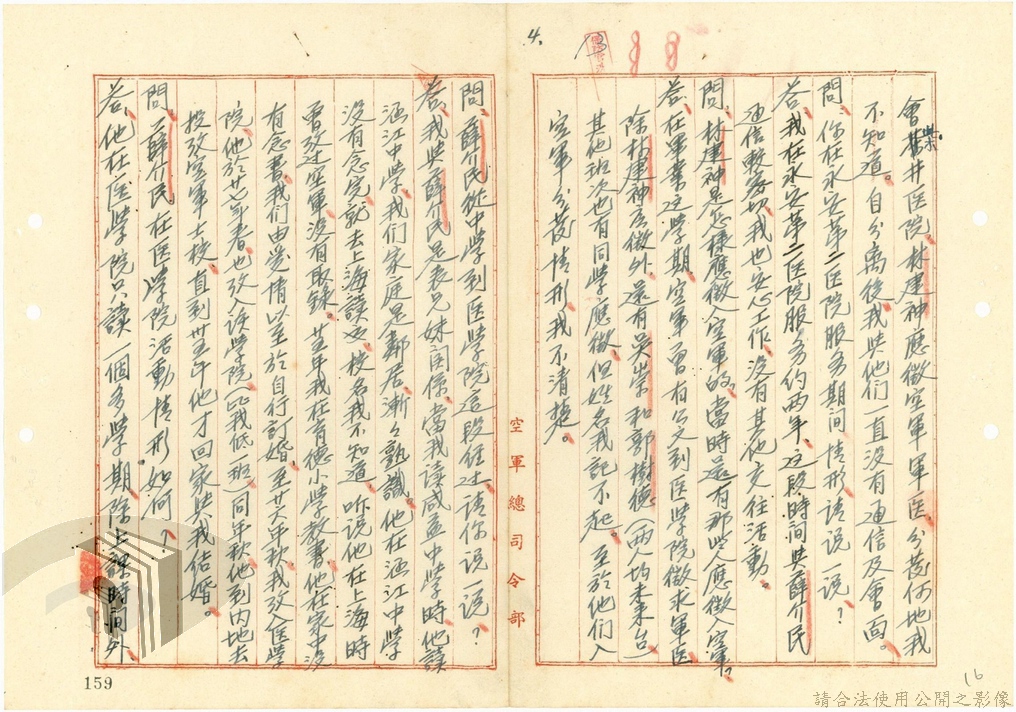 4.
會基督井医院,林建神應徵空軍軍医分發何地我
不知道。自分离後,我與他們一直没有通信及會面。
問:你在永安第二医院服务期间情形請说一说?
答:我在永安第二医院服务约两年,这段時间與薛介民
通信較密切,我也安心工作,没有其他交往活動。
問:林建神是怎樣應徵入空軍的,當時还有那些人應徵入空軍?
答:在畢業这学期,空軍曾有公文到医学院徵求軍医
除林建神應徵外,还有吴崇和郭樹德(两人均未来台)
其他班次也有同学應徵,但姓名我記不起。至於他們入
空軍分發情形,我不清楚。
空軍總司令部
問:薛介民從中学到医学院这段经过請你说一说?
答:我與薛介民是表兄妹関係,當我读咸益中学時,他读
涵江中学,我们家庭是鄰居,漸々熟識。他在涵江中学
没有念完,就去上海读书,校名我不知道,听说他在上海時
曾攷过空軍没有取錄。廿五年我在育德小学教書,他在家中没
有念書,我们由爱情以至於自行訂婚,至廿六年秋,我攷入医学
院,他於廿七年春也攷入该学院(比我低一班)同年秋,他到内地去
投攷空軍士校,直到卅五年他才回家與我结婚。
問:薛介民在医学院活動情形如何?
答:他在医学院只读一個多学期,除上課時間外
159
16
請合法使用公開之影像